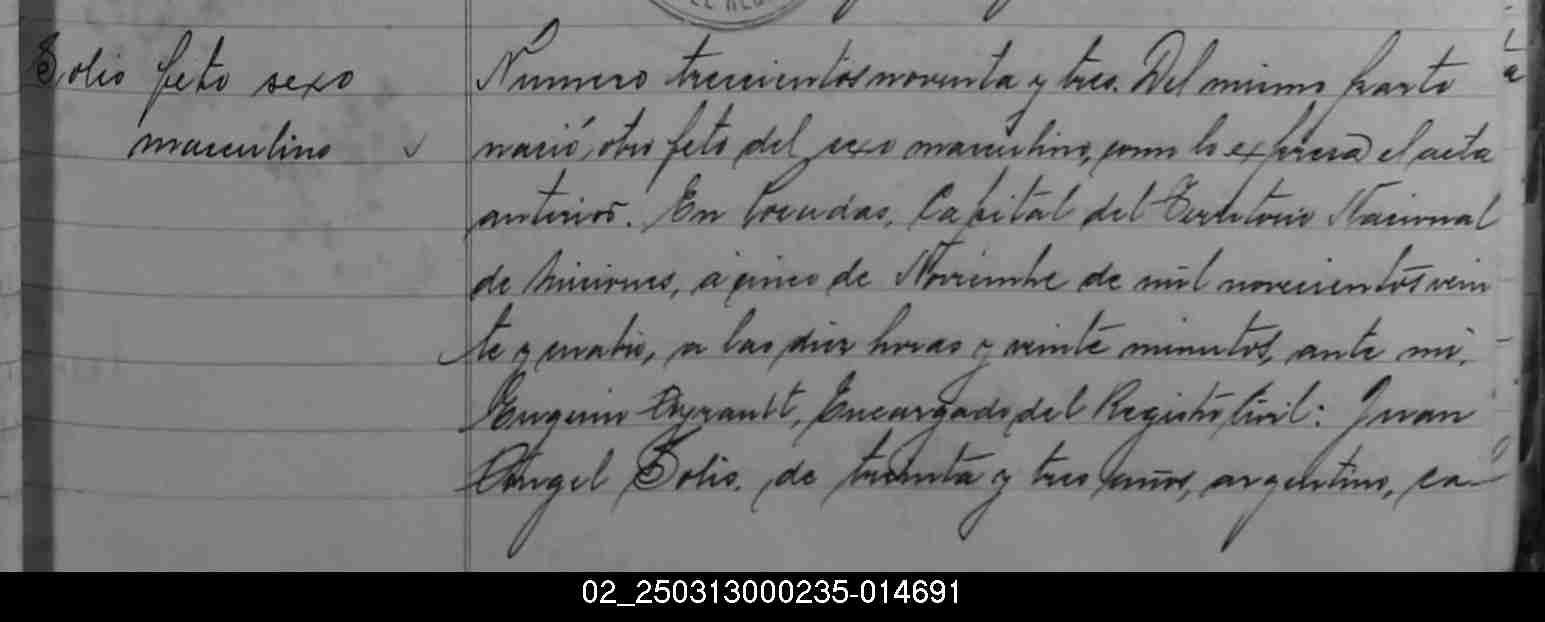 EL REG
Solis feto sexo
masculino
Numero trescientos noventa y tres. Del mismo parto
nació, otro feto del sexo masculino, como lo expresa el acta
anterior. En Posadas, Capital del Territorio Nacional
de Misiones, a cinco de Noviembre de mil novecientos vein
te y cuatro, a las diez horas y veinte minutos, ante mi,
Eugenio Ayrault, Encargado del Registro Civil: Juan
Angel Solis, de treinta y tres años, argentino, ca-
02_250313000235-014691